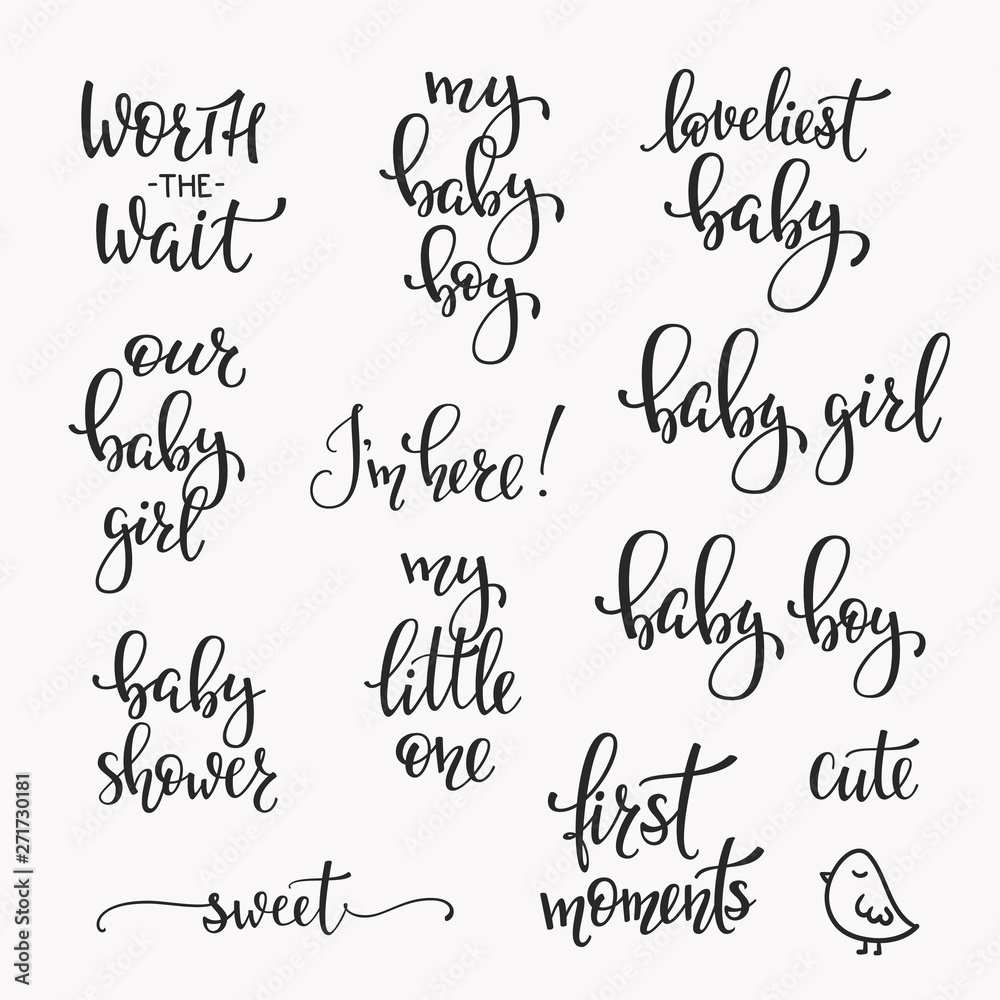 WORTH
-THE-
Wait
my
baby
boy
loveliest
baby
our
baby
girl
I'm here!
baby girl
my
little
one
baby boy
baby
shower
first
moments
cute
sweet
Adobe Stock | #271730181